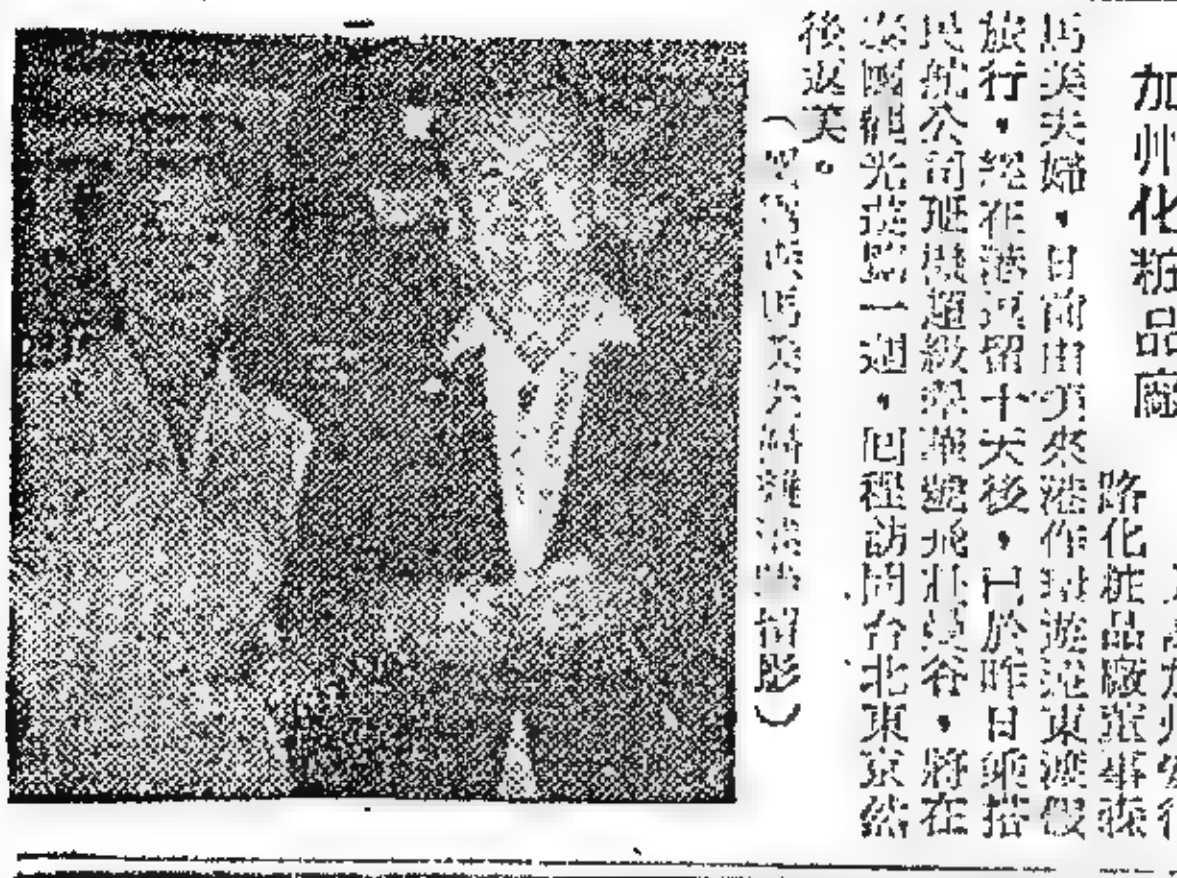 加州化粧品廠
加州
路化粧品廠董事森
馬美夫婦,日前由美來港作環遊遠東渡假
旅行,經在港逗留十天後,已於昨日乘搭
民航公司班機超級翠華號飛往曼谷,將在
泰國觀光遊覽一週,回程訪問台北東京然
後返美。
馬美夫婦 留影)